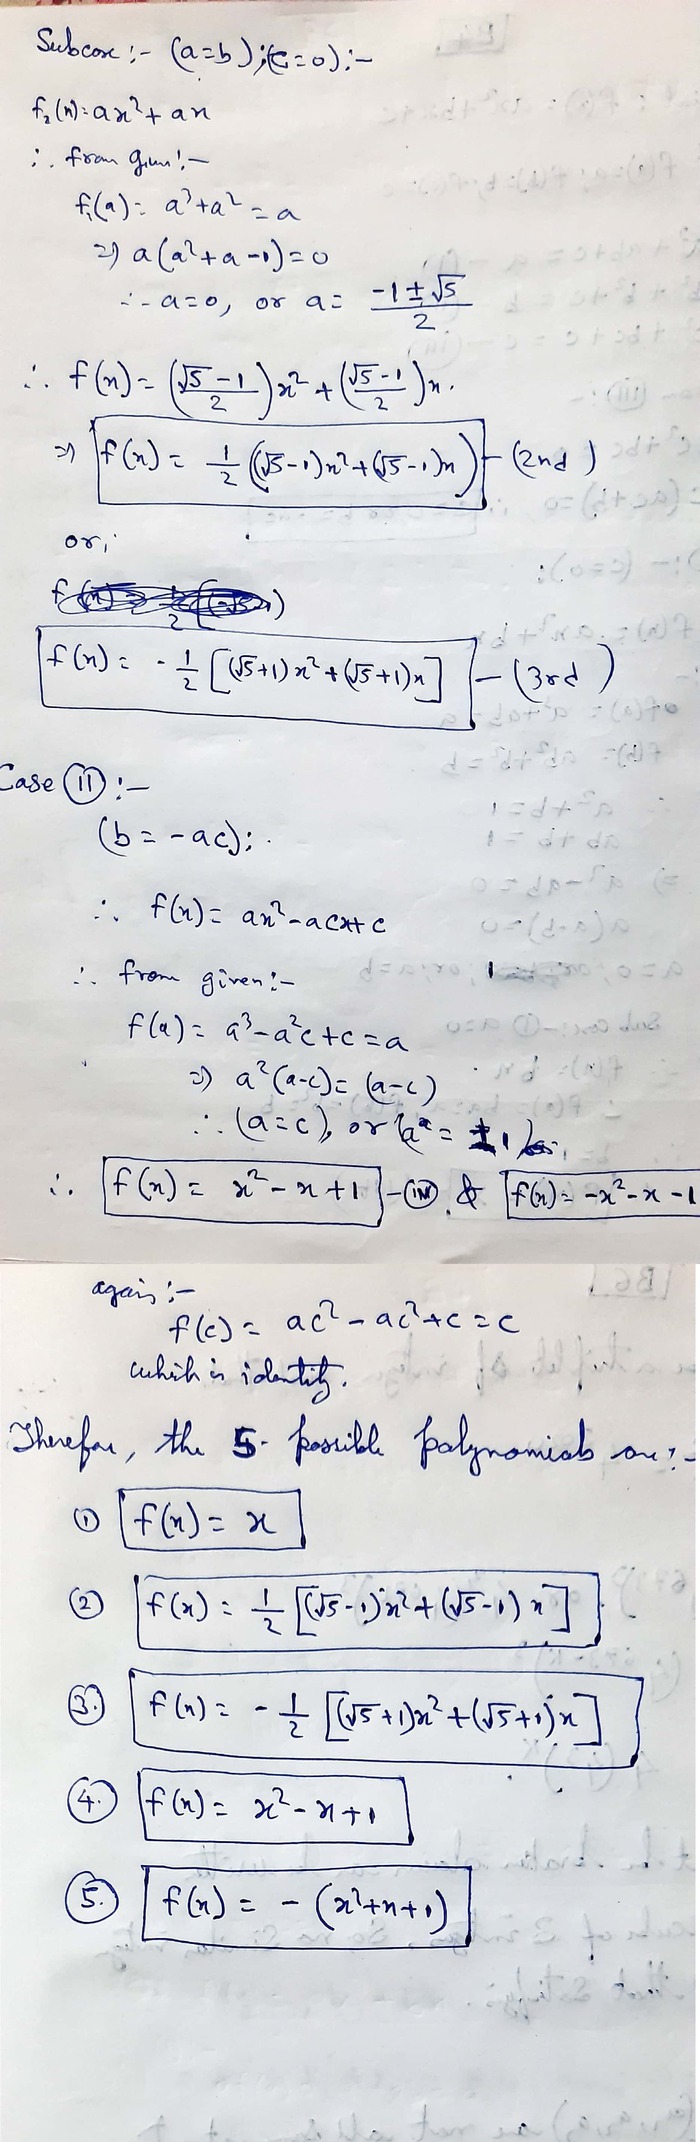 Subcase :- (a=b); (c=0) :-
f₂(x) = ax² + ax
∴ from given :-
f₁(a) = a³+a² = a
⇒ a(a²+a-1)=0
∴ a=0, or a = (-1±√5)/2
∴ f(x) = ((√5-1)/2)x² + ((√5-1)/2)x.
⇒ f(x) = 1/2 ((√5-1)x²+(√5-1)x) - (2nd)
or,
f(x) = -1/2 [(√5+1)x²+(√5+1)x] - (3rd)
Case (II) :-
(b = -ac);
∴ f(x) = ax²-acx+c
∴ from given :-
f(a) = a³-a²c+c = a
⇒ a²(a-c) = (a-c)
∴ (a=c), or (a = ±1)
∴ f(x) = x²-x+1 - (IV) & f(x) = -x²-x-1
again :-
f(c) = ac²-ac²+c = c
which is identity.
Therefor, the 5 possible polynomials are :-
(1) f(x) = x
(2) f(x) = 1/2 [(√5-1)x²+(√5-1)x]
(3.) f(x) = -1/2 [(√5+1)x²+(√5+1)x]
(4.) f(x) = x²-x+1
(5.) f(x) = -(x²+x+1)